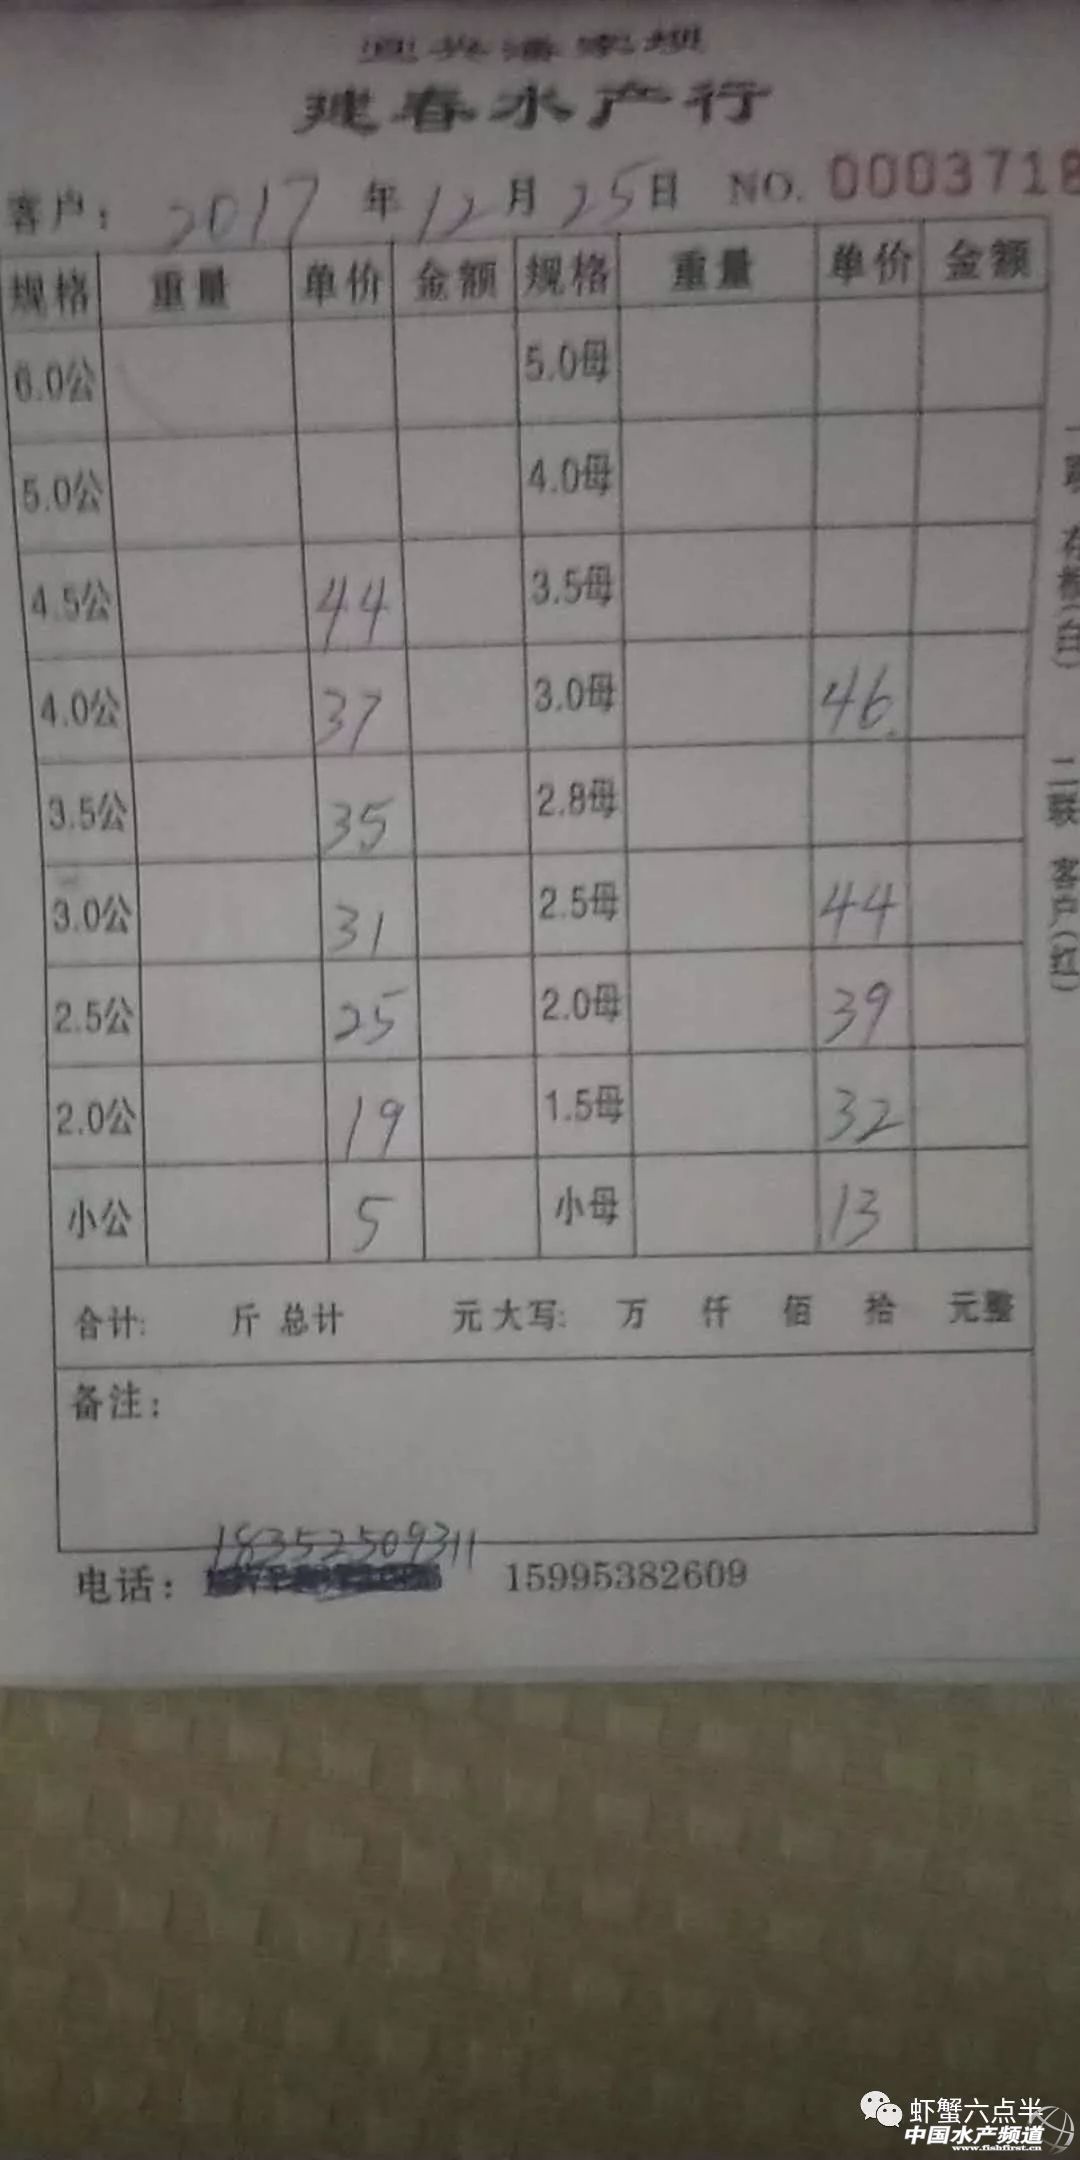 宜兴潘家坝
建春水产行
客户: 2017 年 12 月 25 日 NO. 0003718
规格 重量 单价 金额 规格 重量 单价 金额
6.0公 5.0母
5.0公 4.0母
4.5公 44 3.5母
4.0公 37 3.0母 46
3.5公 35 2.8母
3.0公 31 2.5母 44
2.5公 25 2.0母 39
2.0公 19 1.5母 32
小公 5 小母 13
合计: 斤 总计 元 大写: 万 仟 佰 拾 元整
备注:
18352509311
电话: 15995382609
一联 存根(白) 二联 客户(红)
虾蟹六点半
中国水产频道
www.fishfirst.cn